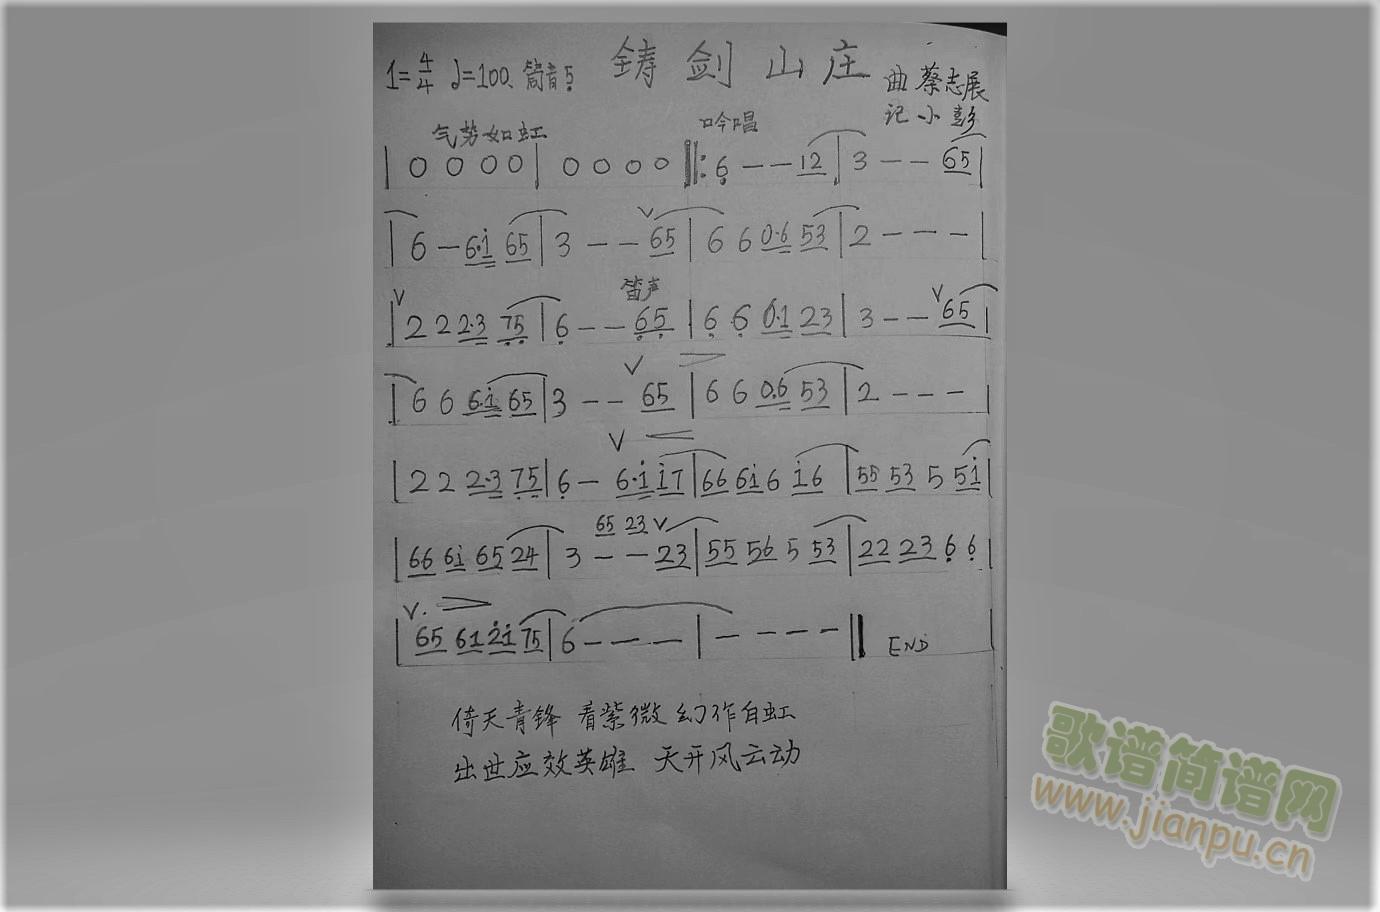 1=4/4 ♩=100、筒音5̣ 铸剑山庄 曲 蔡志展
记 小彭
气势如虹 吟唱
| 0 0 0 0 | 0 0 0 0 ‖: 6̣ - - 12 | 3 - - 65 |
| 6 - 6·i 65 | 3 - - 65 | 6 6 0·6 53 | 2 - - - |
笛声
| 2 2 2·3 75 | 6 - - 65 | 6 6 0·1 23 | 3 - - 65 |
| 6 6 6·i 65 | 3 - - 65 | 6 6 0·6 53 | 2 - - - |
| 2 2 2·3 75 | 6 - 6·i i7 | 66 6i 6 i6 | 55 53 5 5i |
65 23
| 66 6i 65 24 | 3 - - 23 | 55 56 5 53 | 22 23 6 6 |
| 65 61 2i 75 | 6 - - - | - - - - ‖ END
倚天青锋 看紫微幻作白虹
出世应效英雄 天开风云动
歌谱简谱网
www.jianpu.cn